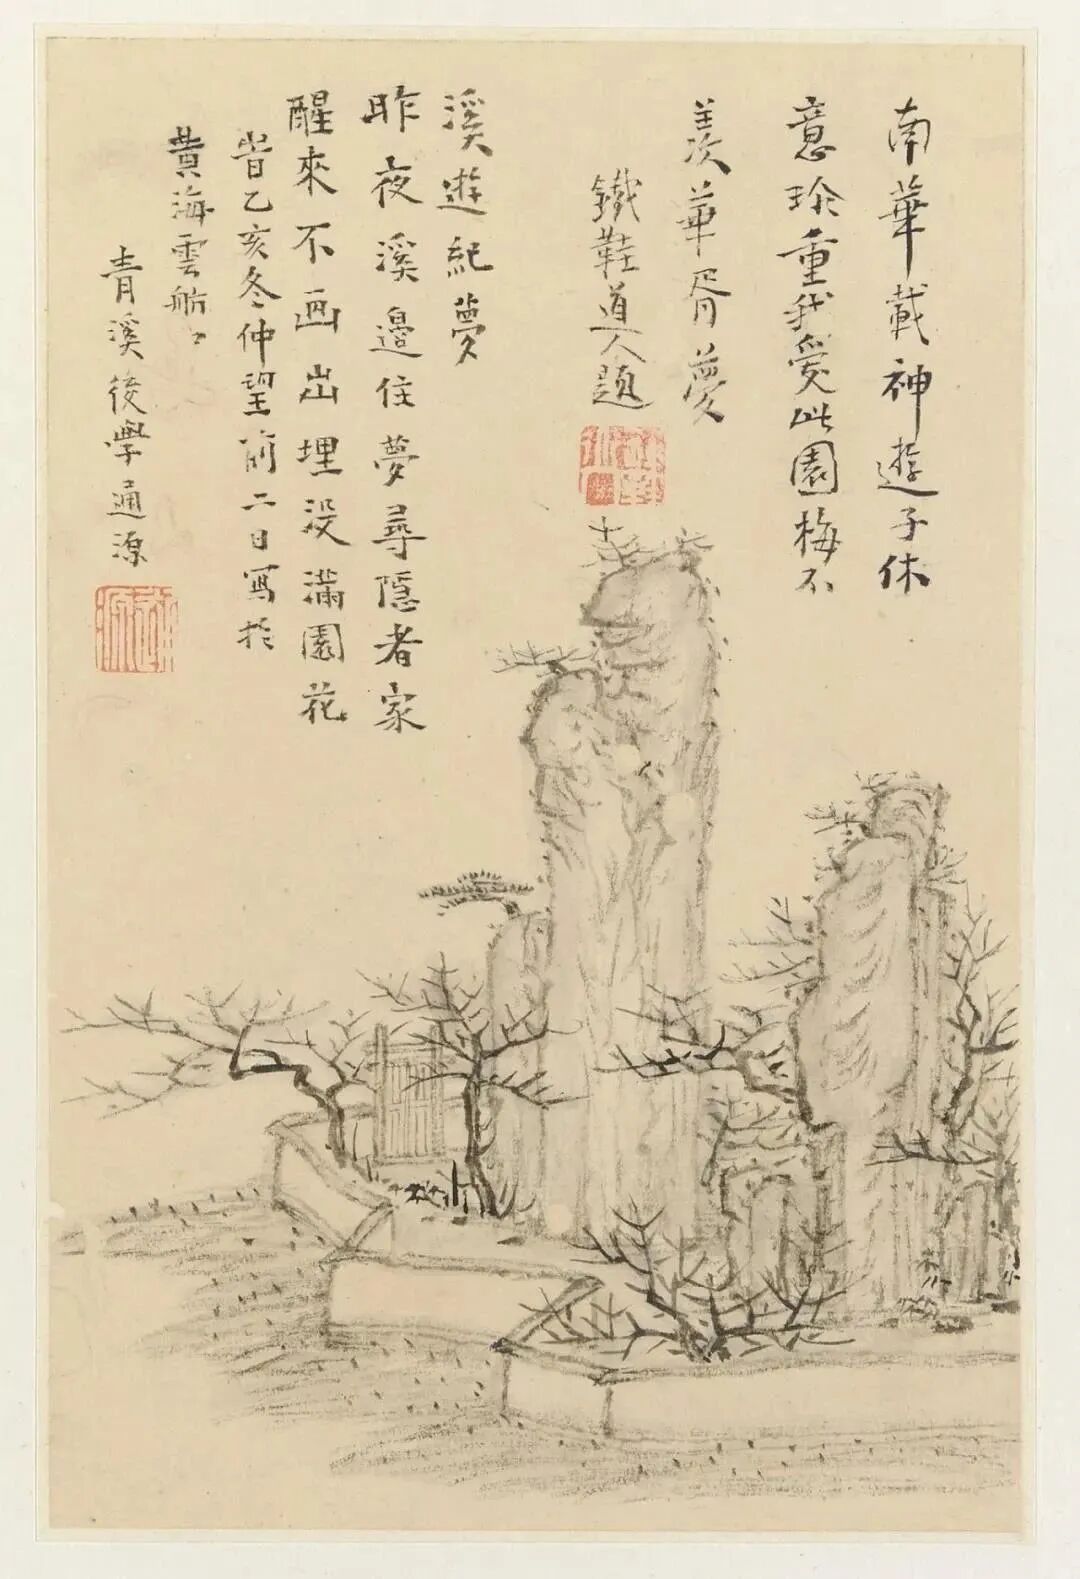 南華載神遊子休
意珍重我愛此園梅不
羨華胥夢
鐵鞋道人題
溪遊紀夢
昨夜溪邊住夢尋隱者家
醒來不画出埋没滿園花
旹乙亥冬仲望前二日寫於
黄海雲舫
青溪後學通源